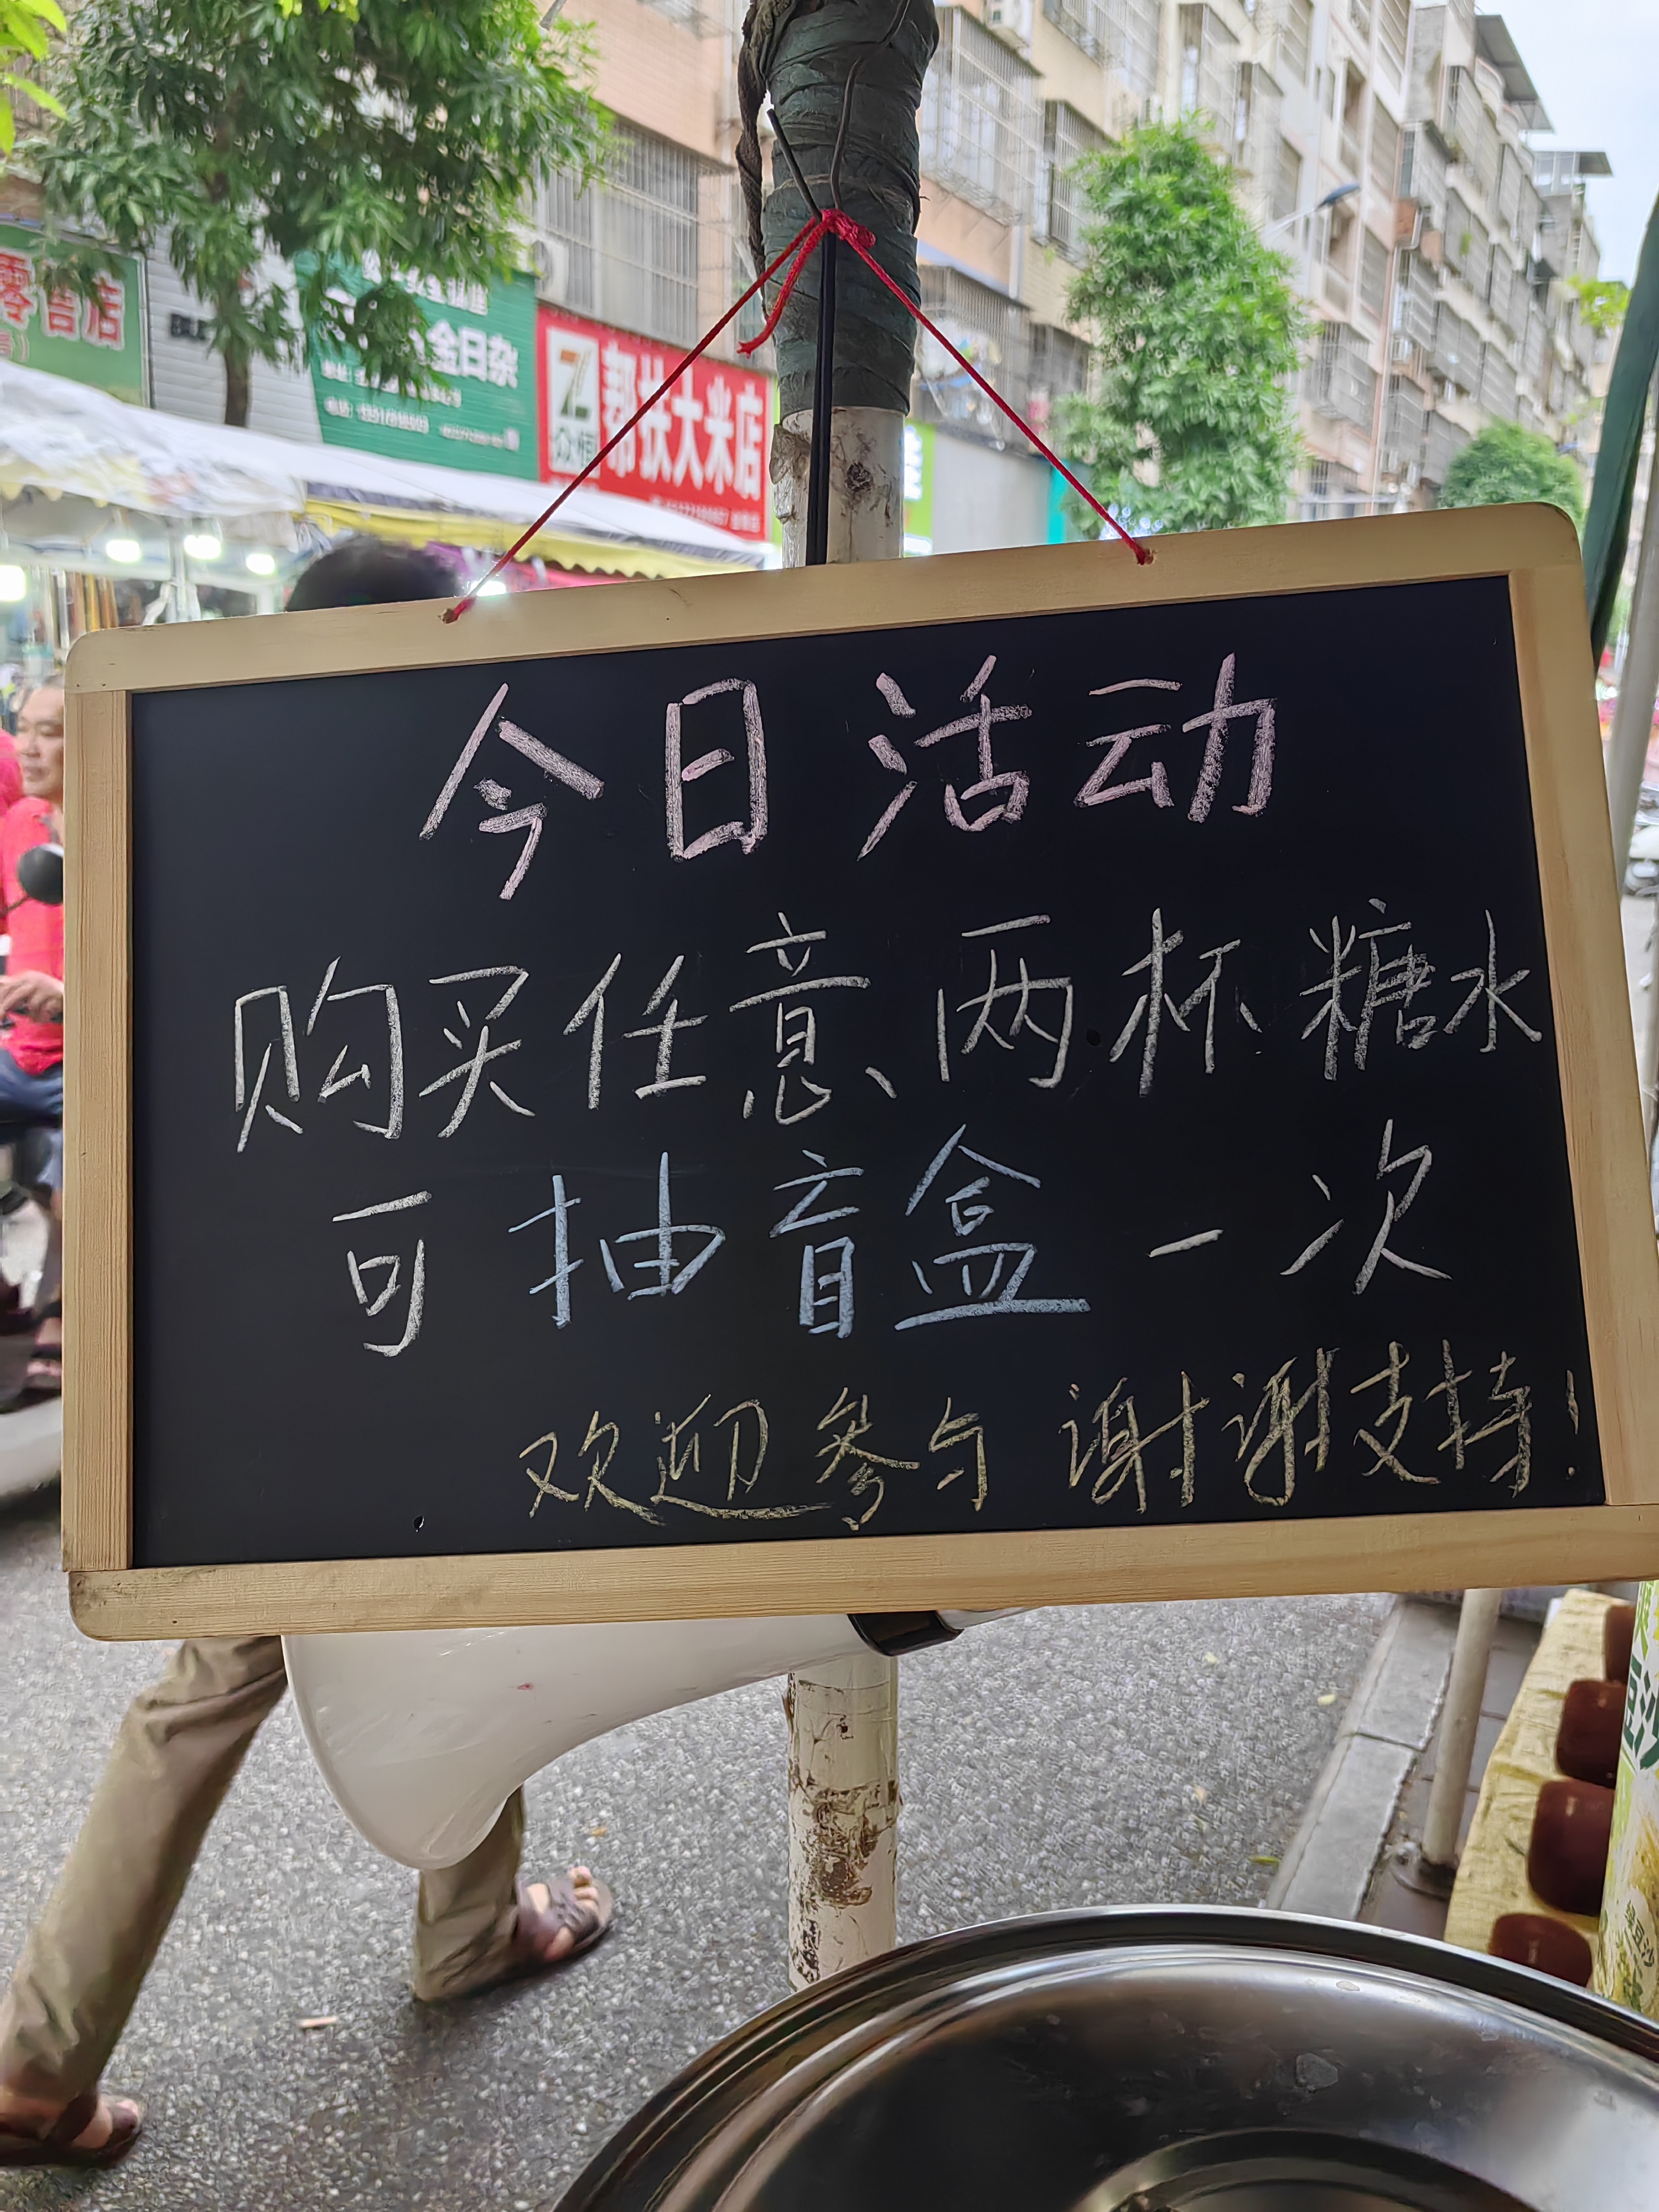 零售店
金日杂
众恒
帮扶大米店
今日活动
购买任意两杯糖水
可抽盲盒一次
欢迎参与 谢谢支持!
豆沙
绿豆沙